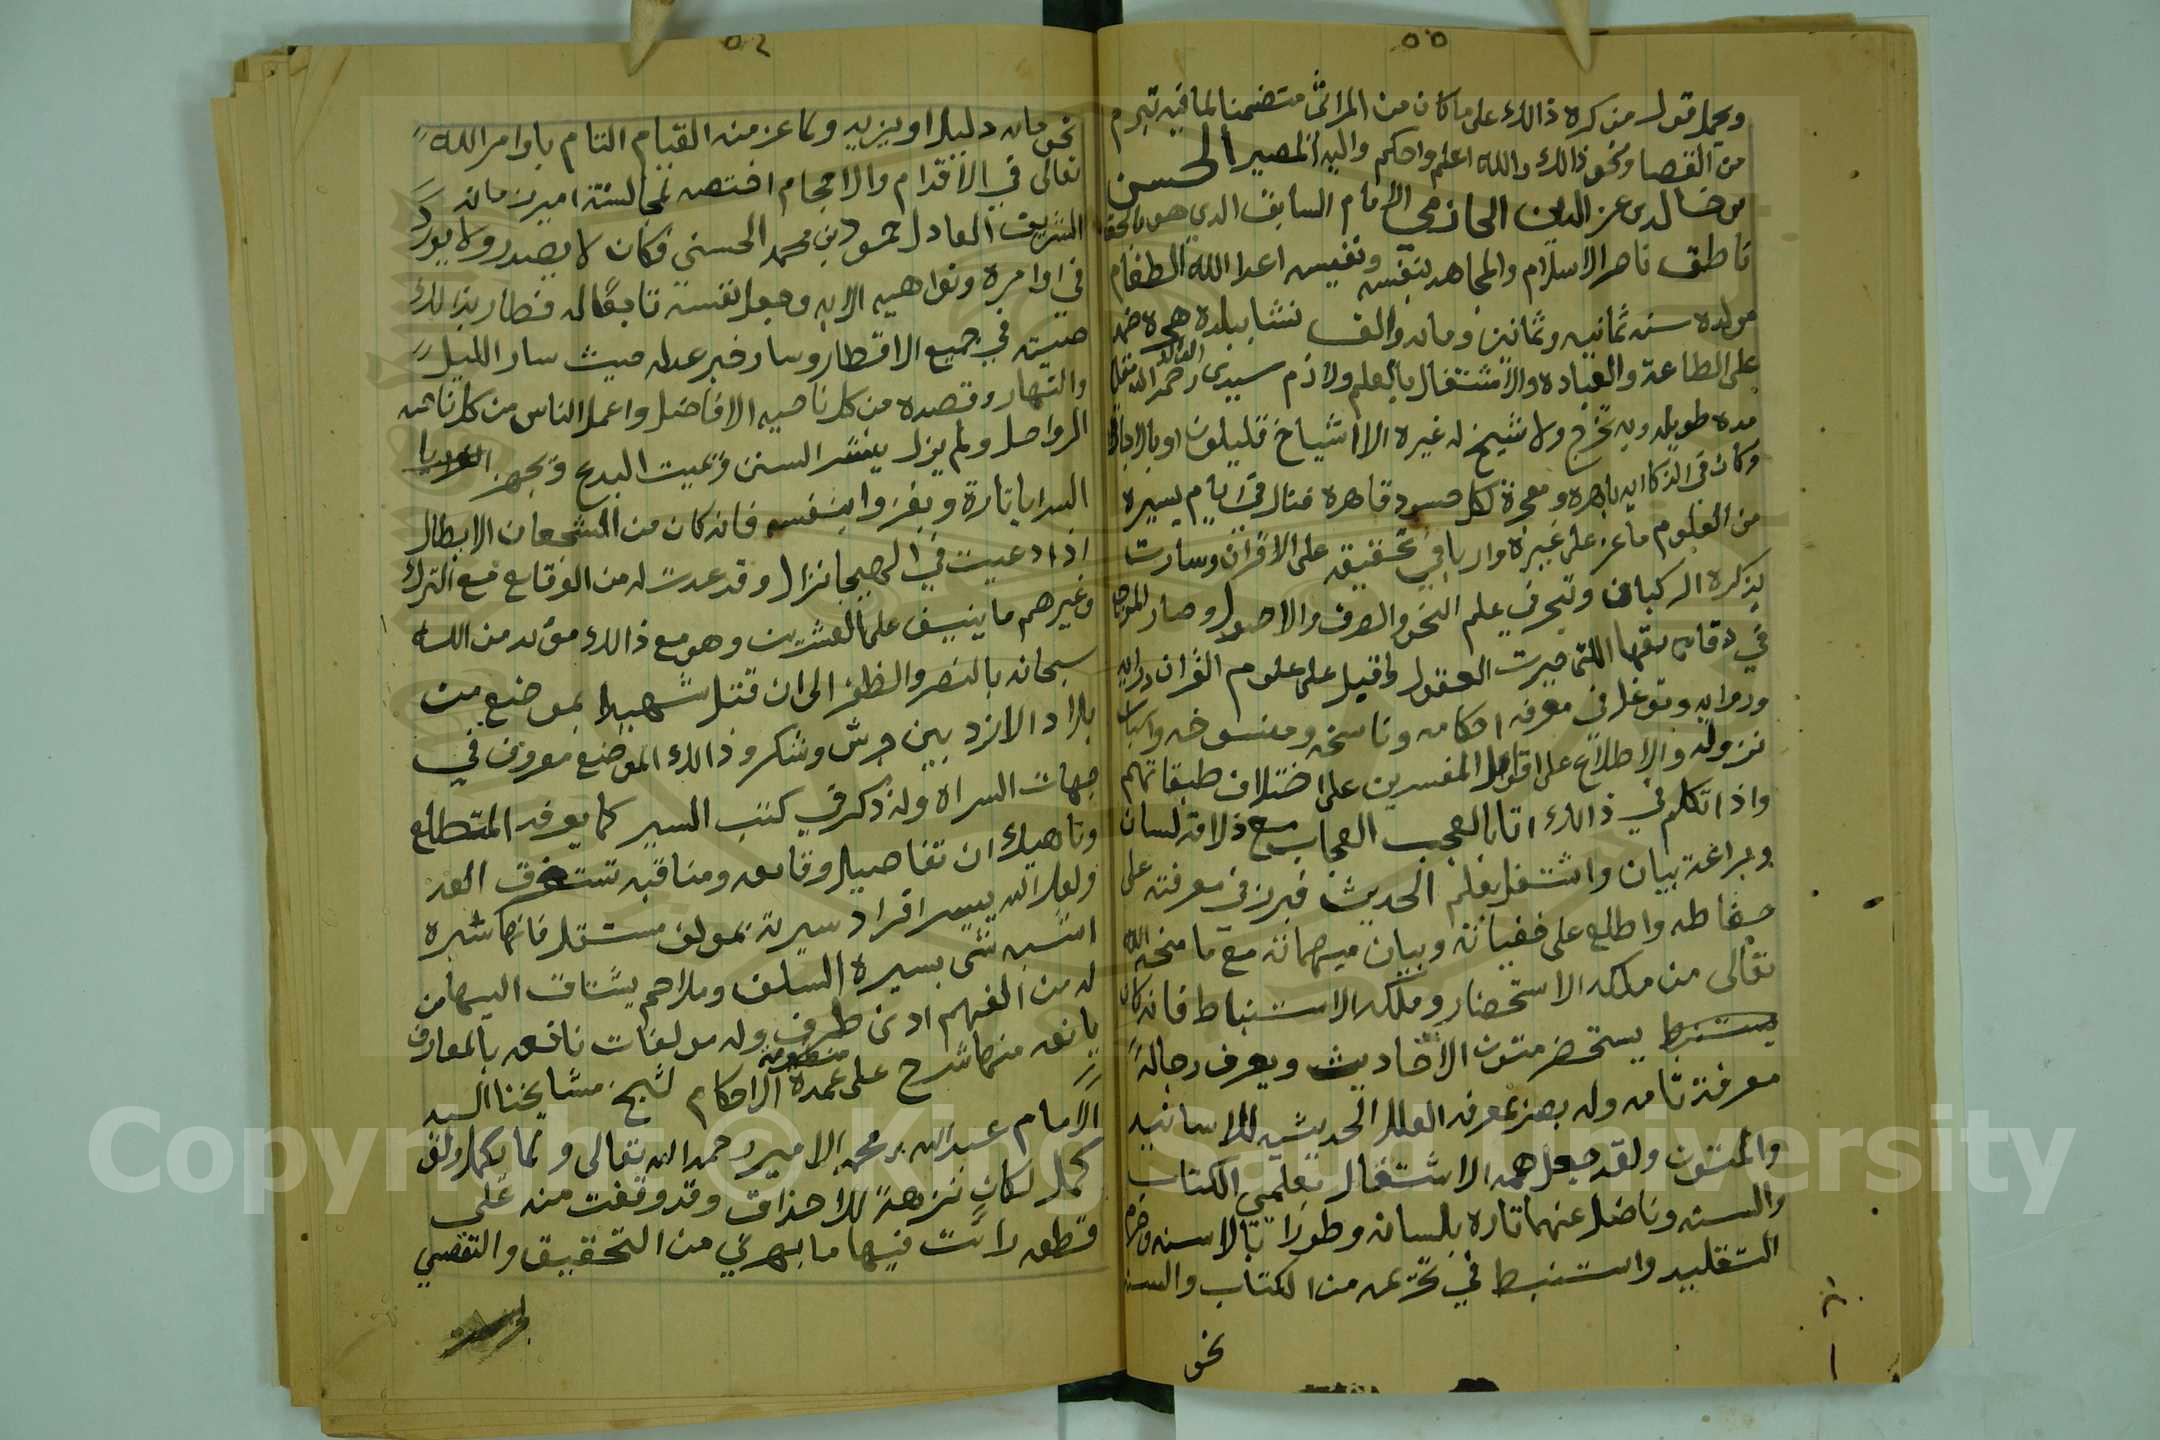 ٥٥
ويحمل قول من كره ذالك على ما كان من المراثي متضمنا لما فيه تبرم
من القضا ونحو ذالك والله اعلم واحكم واليه المصير الحسن
بن خالد بن عز الدين الحازمي الامام السابق الذي هو بالحق
ناطق ناصر الاسلام والمجاهد بنفسه ونفيسه اعدا الله الطغام
مولده سنه ثمانيه وثمانين ومايه والف نشا ببلده هجرة ضمد
على الطاعة والعباده والاشتغال بالعلم ولازم سيدي الوالد رحمه الله
مده طويله وبه تخرج ولا شيخ له غيره الا اشياخ قليلون او بالاجازه
وكان في الذكا ايه باهره ومعجزة لكل حسود قاهره فنال في ايام يسيره
من العلوم ما عز على غيره واربا في تحقيقه على الاقران وسارت
بذكره الركبان وتبحر في علم النحو والصرف والاصول وصار المرجع
في دقايقها اللتي حيرت العقول واقبل على علوم القران درايه
وروايه وتوغل في معرفه احكامه وناسخه ومنسوخه واسباب
نزوله والاطلاع على اقوال المفسرين على اختلاف طبقاتهم
واذا تكلم في ذالك اتا بالعجب العجاب مع ذلاقة لسان
وبراعة بيان واشتغل بعلم الحديث فبرز في معرفته على
حفاظه واطلع على خفياته وبيان مبهماته مع ما منحه الله
تعالى من ملكه الاستحضار وملكه الاستنباط فانه كان
يستنبط يستحضر متون الاحاديث ويعرف رجاله
معرفة تامه وله بصر بمعرفه العلل الحديثيه للاسانيد
والمتون ولقد جعل همه الاشتغال بعلمي الكتاب
والسنه وناضل عنهما تاره بلسانه وطورا بالاسنه وحرم
التقليد واستنبط في تحريمه من الكتاب والسنه
نحو
٥٤
نحو مايه دليل او يزيد ولما عز منه القيام التام باوامر الله
تعالى في الاقدام والاحجام اختصه بمجالسته امير زمانه
الشريف العادل حمود بن محمد الحسني فكان لا يصدر ولا يورد
في اوامره ونواهيه الا به وجعل نفسه تابعًا له فطار بذالك
صيته في جميع الاقطار وسار خبر عدله حيث سار الليل
والنهار وقصده من كل ناحيه الافاضل واعمل الناس من كل ناحيه
الرواحل ولم يزل ينشر السنن ويميت البدع ويجهز
السرايا تارة ويغزوا بنفسه فانه كان من الشجعان الابطال
اذا دعيت في الهيجا نزال وقد عدت له من الوقايع مع الترك
وغيرهم ما ينيف على العشرين وهو مع ذالك مؤيد من الله
سبحانه بالنصر والظفر الى ان قتل شهيدا بموضع من
بلاد الازد بين جرش وشكر وذالك الموضع معروف في
جهات السراه وله ذكر في كتب السير كما يعرفه المتطلع
وناهيك ان تفاصيل وقايعه ومناقبه تستغرق العد
ولعل الله ييسر افراد سيرته بمولف مستقل فانها سيره
اشبه شى بسيرة السلف وملاحم يشتاق اليها من
له من الفهم ادنى طرف وله مولفات نافعه بالمعارف
يانعه منها شرح على منظومة عمدة الاحكام لشيخ مشايخنا السيد
الامام عبد الله بن محمد الامير رحمه الله تعالى ولما يكمل ولو
كمل لكان نزهةً للاحداق وقد وقفت منه على
قطعه رايت فيها ما بهرني من التحقيق والتقصي
Copyright © King Saud University